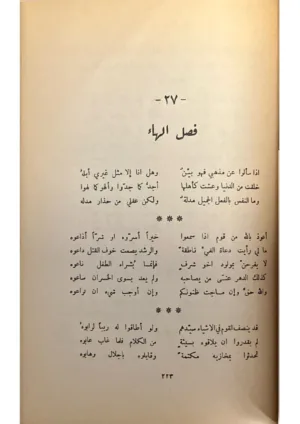 - ٢٧ -
فصل الهاء
اذا سألوا عن مذهبي فهو بيّنٌ وهل انا إلا مثل غيري أبلهُ
خلقت من الدنيا وعشت كأهلها أجدُّ كما جدّوا وألهو كما لهوا
وما النفس بالفعل الجميل مدلةٌ ولكن عقلي من حذار مدله
* * *
أعوذ بالله من قوم اذا سمعوا خيراً أسرّوه او شرّاً أذاعوه
ما لي رأيت دعاة الغيّ ناطقةً والرشد يصمت خوف القتل داعوه
لا يفرحنّ بمولود اخو شرفٍ فإنما بُشراء الطفل ناعوه
كذلك الدهر من يصاحبه ولم يعد بسوى الخسران ساعوه
والله حقّ وإن ظنونكم وإن أوجب شيء ان تراعوه
* * *
قد ينصف القوم في الاشياء سيّدهم ولو أطاقوا له ريباً لرابوهُ
لم يقدروا ان يلاقوه بسيئةٍ من الكلام فلما غاب عابوه
تحدثوا بمخازيه مكتمةً وقابلوه بإجلال وهابوه
٢٢٣